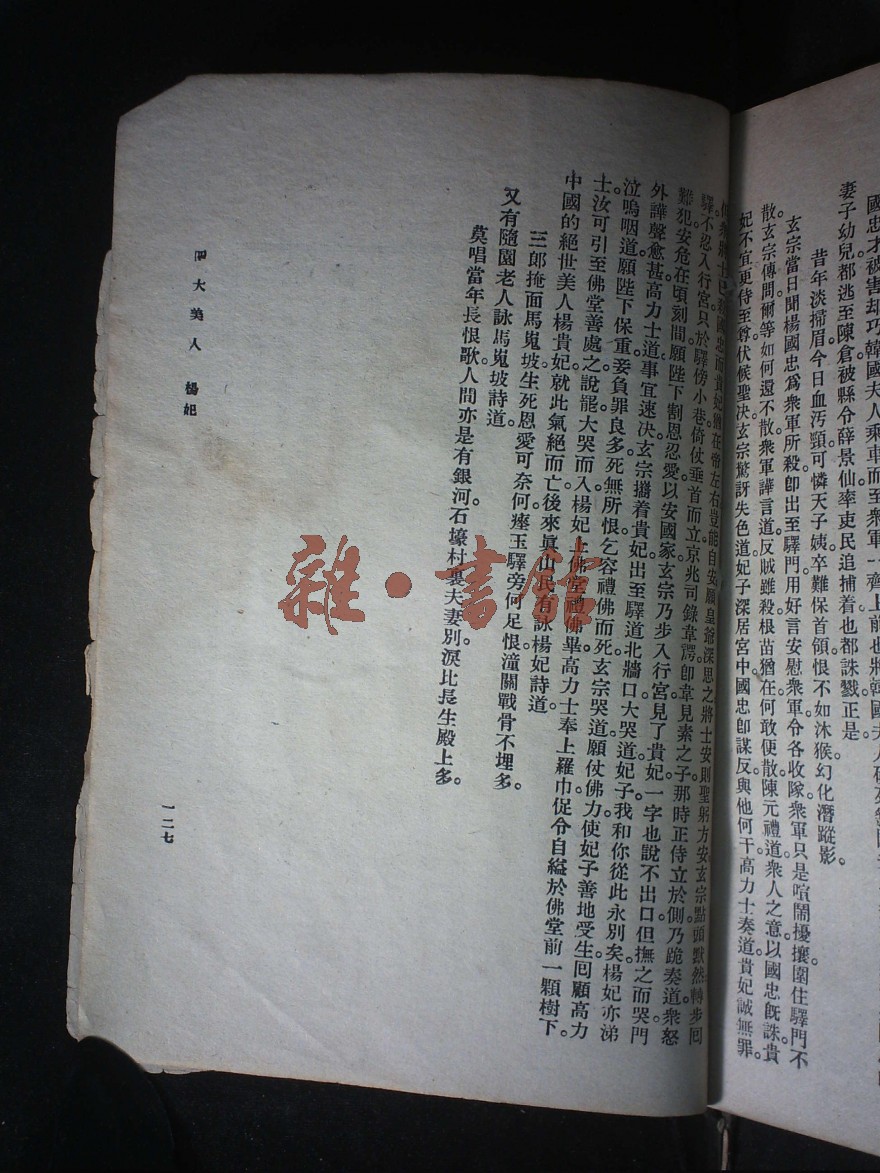 國忠才被害却巧韓國夫人乘車而至衆軍一齊上前也將韓國夫人
妻子幼兒都逃至陳倉被縣令薛景仙率吏民追捕着也都誅戮正是。
昔年淡掃眉今日血汚頸可憐天子姨卒難保首領恨不如沐猴幻化潛蹤影。
玄宗當日聞楊國忠爲衆軍所殺卽出至驛門用好言安慰衆軍令各收隊衆軍只是喧鬧擾攘圍住驛門不
散玄宗傳問爾等如何還不散衆軍譁言道。反賊雖殺根苗猶在何敢便散。陳元禮道衆人之意以國忠旣誅貴
妃不宜更侍至尊伏候聖決。玄宗驚訝失色道妃子深居宮中。國忠卽謀反與他何干。高力士奏道貴妃誠無罪。
但衆將士已殺國忠而貴妃猶在帝左右豈能自安願皇爺深思之將士安則聖躬方安玄宗點頭默然轉步回
驛不忍入行宮。只於驛傍小巷倚仗垂首而立。京兆司錄韋諤卽韋見素之子那時正侍立於側乃跪奏道衆怒
難犯安危在頃刻間願陛下割恩忍愛以安國家玄宗乃步入行宮見了貴妃一字也說不出口但撫之而哭門
外譁聲愈甚高力士道事宜速決。玄宗攜着貴妃出至驛道北牆口大哭道妃子我和你從此永別矣。楊妃亦涕
泣嗚咽道願陛下保重妾負罪良多死無所恨乞容禮佛而死玄宗哭道願仗佛力使妃子善地受生回顧高力
士汝可引至佛堂善處之說罷大哭而入楊妃上佛堂禮佛畢高力士奉上羅巾促令自縊於佛堂前一顆樹下。
中國的絕世美人楊貴妃就此氣絕而亡後來眞山民有詠楊妃詩道
三郎掩面馬嵬坡生死恩愛可奈何瘞玉驛旁何足恨潼關戰骨不埋多。
又有隨園老人詠馬嵬坡詩道。
莫唱當年長恨歌人間亦是有銀河。石壕村裏夫妻別淚比長生殿上多。
四大美人 楊妃
一二七
雜·書館